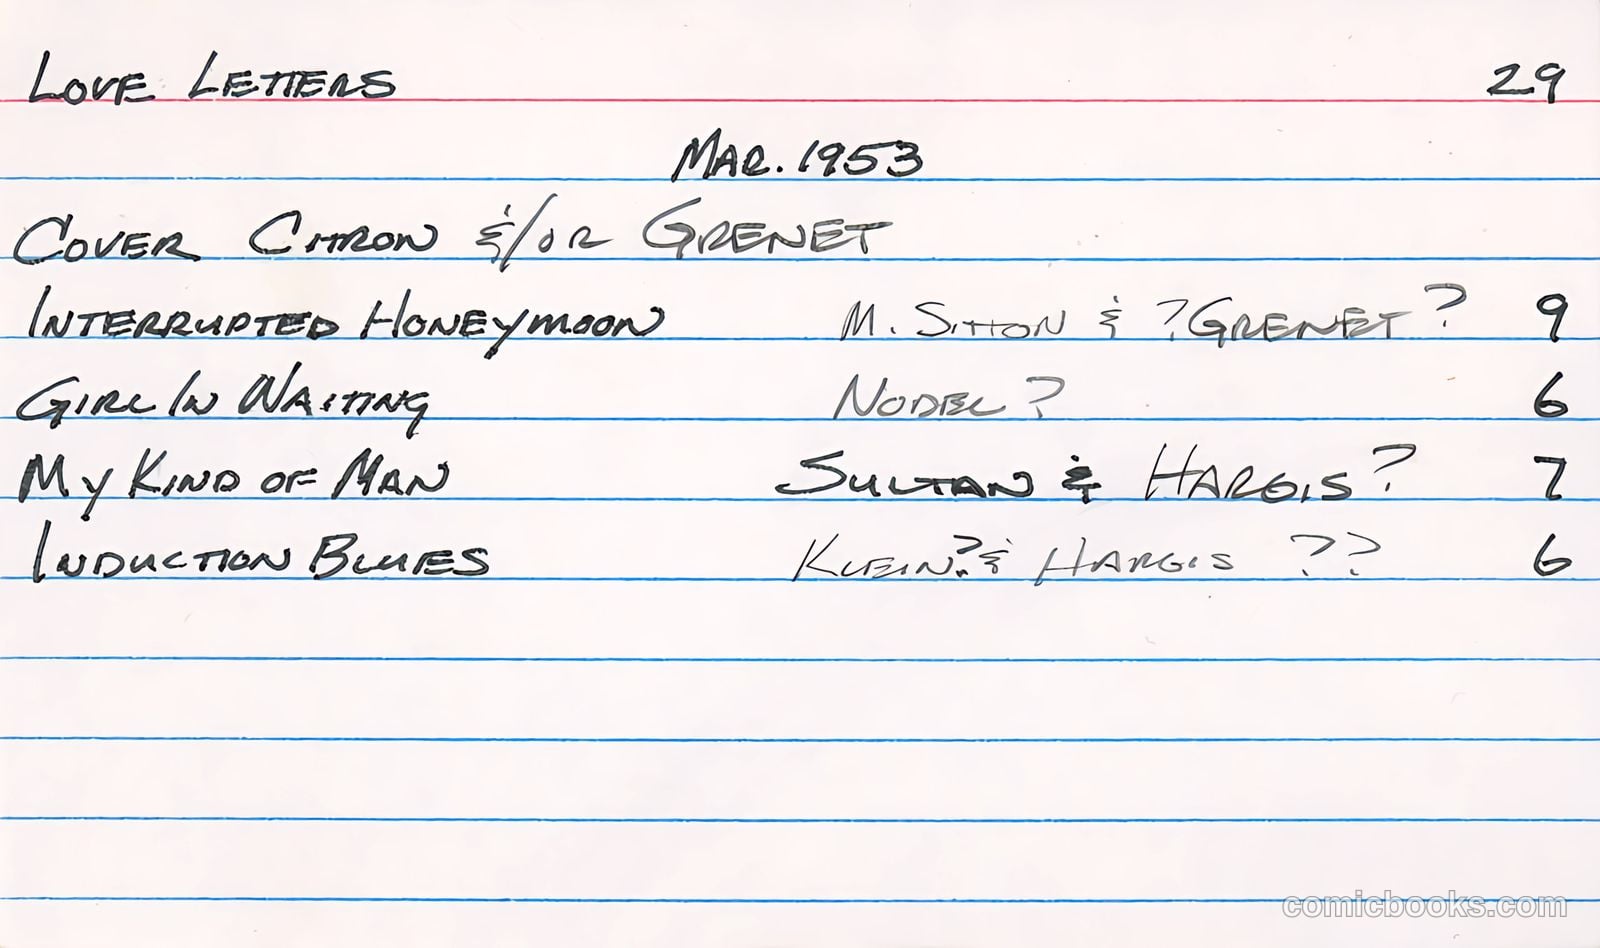 LOVE LETTERS 29
MAR. 1953
COVER CITRON &/OR GRENET
INTERRUPTED HONEYMOON M. SITTON & ?GRENET? 9
GIRL IN WAITING NODEL? 6
MY KIND OF MAN SULTAN & HARGIS? 7
INDUCTION BLUES KLEIN?& HARGIS ?? 6
comicbooks.com